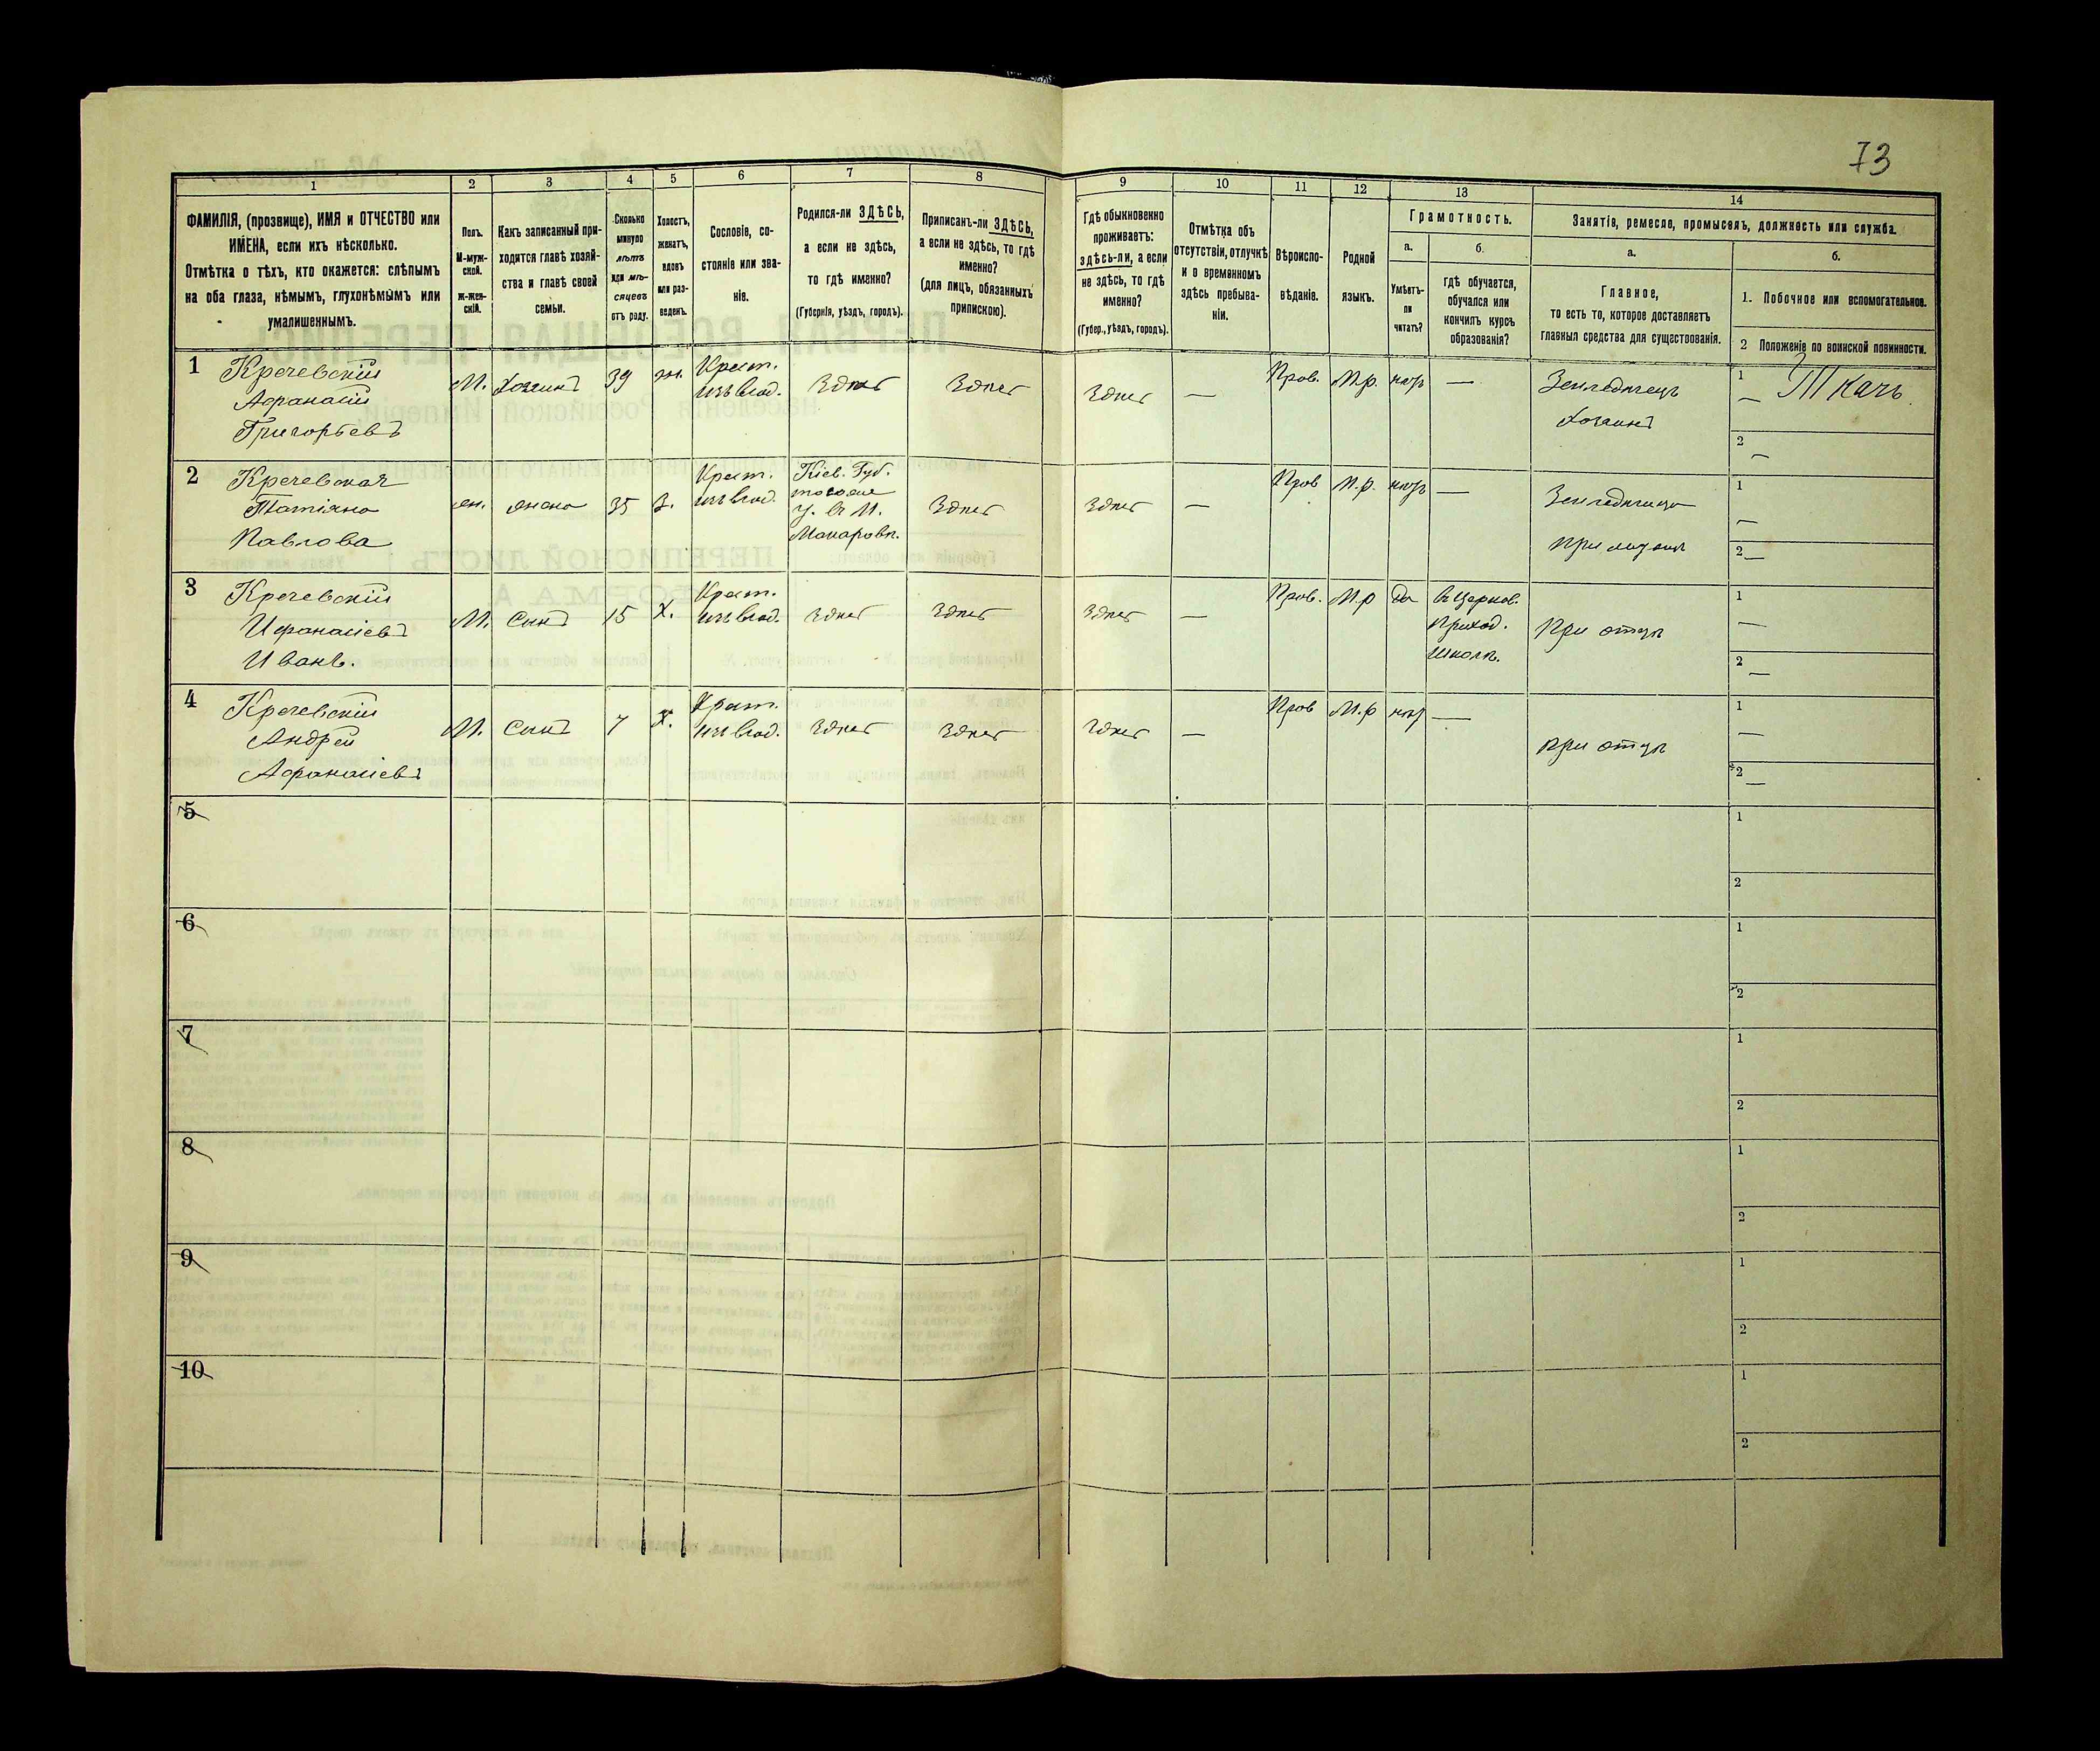 73
1 2 3 4 5 6 7 8 9 10 11 12 13 14
ФАМИЛІЯ, (прозвище), ИМЯ и ОТЧЕСТВО или
ИМЕНА, если ихъ нѣсколько.
Отмѣтка о тѣхъ, кто окажется: слѣпымъ
на оба глаза, нѣмымъ, глухонѣмымъ или
умалишеннымъ.
Полъ.
М-муж-
ской.
ж-жен-
скій.
Какъ записанный при-
ходится главѣ хозяй-
ства и главѣ своей
семьи.
Сколько
минуло
лѣтъ
или мѣ-
сяцевъ
отъ роду.
Холостъ,
женатъ,
вдовъ
или раз-
веденъ.
Сословіе, со-
стояніе или зва-
ніе.
Родился-ли ЗДѢСЬ,
а если не здѣсь,
то гдѣ именно?
(Губернія, уѣздъ, городъ).
Приписанъ-ли ЗДѢСЬ,
а если не здѣсь, то гдѣ
именно?
(для лицъ, обязанныхъ
припискою).
Гдѣ обыкновенно
проживаетъ:
здѣсь-ли, а если
не здѣсь, то гдѣ
именно?
(Губер., уѣздъ, городъ).
Отмѣтка объ
отсутствіи, отлучкѣ
и о временномъ
здѣсь пребыва-
ніи.
Вѣроиспо-
вѣданіе.
Родной
языкъ.
Грамотность.
а.
Умѣетъ-
ли
читать?
б.
гдѣ обучается,
обучался или
кончилъ курсъ
образованія?
Занятія, ремесло, промыселъ, должность или служба.
а.
Главное,
то есть то, которое доставляетъ
главныя средства для существованія.
б.
1. Побочное или вспомогательное.
2 Положеніе по воинской повинности.
1 Кречевскій
Афанасій
Григорьевъ
М. Хозяинъ 39 ж.
Крест.
изъ влад.
Здѣсь Здѣсь Здѣсь — Пров. М.р. нѣтъ —
Земледѣлецъ
Хозяинъ
1 — Ткачь
2 —
2 Кречевская
Татіяна
Павлова
жен. жена 35 З.
Крест.
изъ влад.
Кіев. Губ.
того же
у. в М.
Макаровѣ.
Здѣсь Здѣсь — Пров М.р. нѣтъ —
Земледѣлица
при мужѣ
1 —
2 —
3 Кречевскій
Афанасіевъ
Иванъ.
М. Сынъ 15 Х.
Крест.
изъ влад.
Здѣсь Здѣсь Здѣсь — Пров. М.р да
в Церков.
Приход.
школѣ.
При отцѣ
1 —
2 —
4 Кречевскій
Андрей
Афанасіевъ
М. Сынъ 7 Х.
Крест.
изъ влад.
Здѣсь Здѣсь Здѣсь — Пров М.р нѣт —
при отцѣ
1 —
2 —
5
1
2
6
1
2
7
1
2
8
1
2
9
1
2
10
1
2